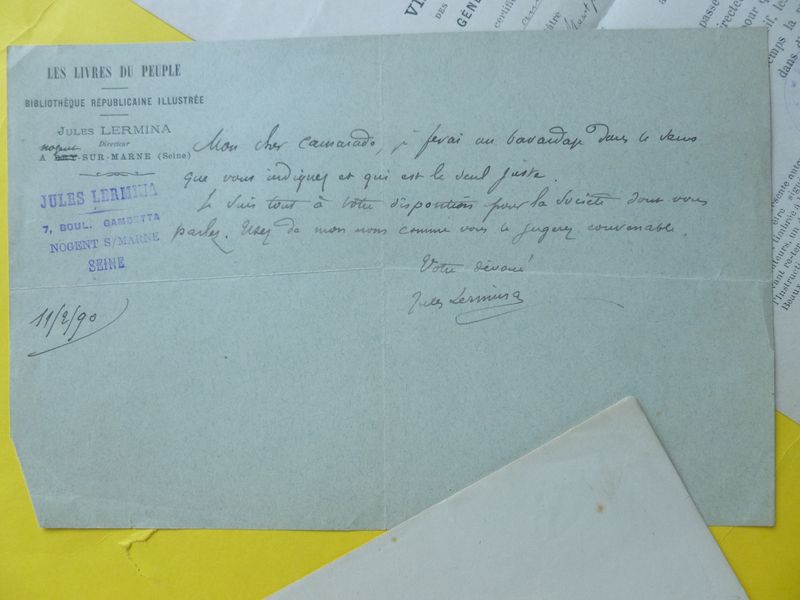 LES LIVRES DU PEUPLE
BIBLIOTHÈQUE RÉPUBLICAINE ILLUSTRÉE
JULES LERMINA
Directeur
Nogent
A SUR-MARNE (Seine)
JULES LERMINA
7, BOUL. GAMBETTA
NOGENT S/MARNE
SEINE
Mon cher camarade, je ferai un bavardage dans le sens
que vous indiquez et qui est le seul juste.
Je suis tout à votre disposition pour la Société dont vous
parlez. Usez de mon nom comme vous le jugerez convenable.
Votre dévoué
Jules Lermina
11/2/90
DES
GÉNÉ
certifi
être
passe
directe
if, les
temps la
dans d
sente auto
être signé
timbrée à
ateurs, un
vant re-to
l'Instruct
Beaux